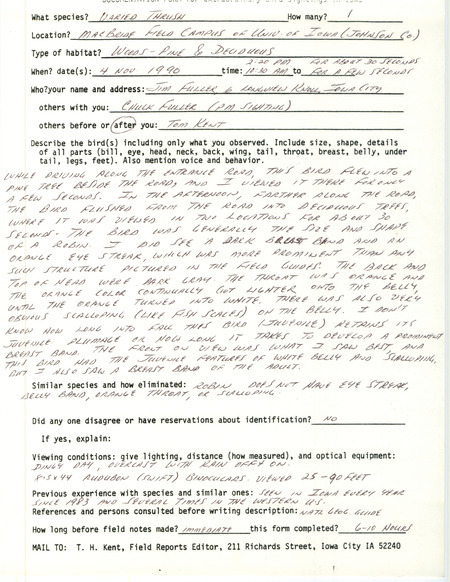 What species? VARIED THRUSH How many? 1
Location? MACBRIDE FIELD CAMPUS OF UNIV. OF IOWA (JOHNSON CO)
Type of habitat? WOODS - PINE & DECIDUOUS
2:20 PM FOR ABOUT 30 SECONDS
When? date(s): 4 NOV 1990 time: 10:30 AM to FOR A FEW SECONDS
Who?your name and address: JIM FULLER 6 LONGVIEW KNOLL, IOWA CITY
others with you: CHUCK FULLER (PM SIGHTING)
others before or after you: TOM KENT
Describe the bird(s) including only what you observed. Include size, shape, details
of all parts (bill, eye, head, neck, back, wing, tail, throat, breast, belly, under
tail, legs, feet). Also mention voice and behavior.
WHILE DRIVING ALONG THE ENTRANCE ROAD, THIS BIRD FLEW INTO A
PINE TREE BESIDE THE ROAD, AND I VIEWED IT THERE FOR ONLY
A FEW SECONDS. IN THE AFTERNOON, FARTHER ALONG THE ROAD,
THE BIRD FLUSHED FROM THE ROAD INTO DECIDUOUS TREES,
WHERE IT WAS VIEWED IN TWO LOCATIONS FOR ABOUT 30
SECONDS. THE BIRD WAS GENERALLY THE SIZE AND SHAPE
OF A ROBIN. I DID SEE A DARK BREAST BAND AND AN
ORANGE EYE STREAK, WHICH WAS MORE PROMINENT THAN ANY
SUCH STRUCTURE PICTURED IN THE FIELD GUIDES. THE BACK AND
TOP OF HEAD WERE DARK GRAY. THE THROAT WAS ORANGE AND
THE ORANGE COLOR CONTINUALLY GOT LIGHTER ONTO THE BELLY,
UNTIL THE ORANGE TURNED INTO WHITE. THERE WAS ALSO VERY
OBVIOUS SCALLOPING (LIKE FISH SCALES) ON THE BELLY. I DON'T
KNOW HOW LONG INTO FALL THIS BIRD (JUVENILE) RETAINS ITS
JUVENILE PLUMAGE OR HOW LONG IT TAKES TO DEVELOP A PROMINENT
BREAST BAND. THE FRONT ON VIEW WAS WHAT I SAW BEST, AND
THIS BIRD HAD THE JUVENILE FEATURES OF WHITE BELLY AND SCALLOPING,
BUT I ALSO SAW A BREAST BAND OF THE ADULT.
Similar species and how eliminated: ROBIN DOES NOT HAVE EYE STREAK,
BELLY BAND, ORANGE THROAT, OR SCALLOPING.
Did any one disagree or have reservations about identification? NO
If yes, explain:
Viewing conditions: give lighting, distance (how measured), and optical equipment:
DINGY DAY, OVERCAST WITH RAIN OFF & ON.
8.5X44 AUDUBON (SWIFT) BINOCULARS. VIEWED 25-90 FEET
Previous experience with species and similar ones: SEEN IN IOWA EVERY YEAR
SINCE 1983 AND SEVERAL TIMES IN THE WESTERN U.S.
References and persons consulted before writing description: NATL GEOG. GUIDE
How long before field notes made? IMMEDIATE this form completed? 6-10 HOURS
MAIL TO: T. H. Kent, Field Reports Editor, 211 Richards Street, Iowa City IA 52240